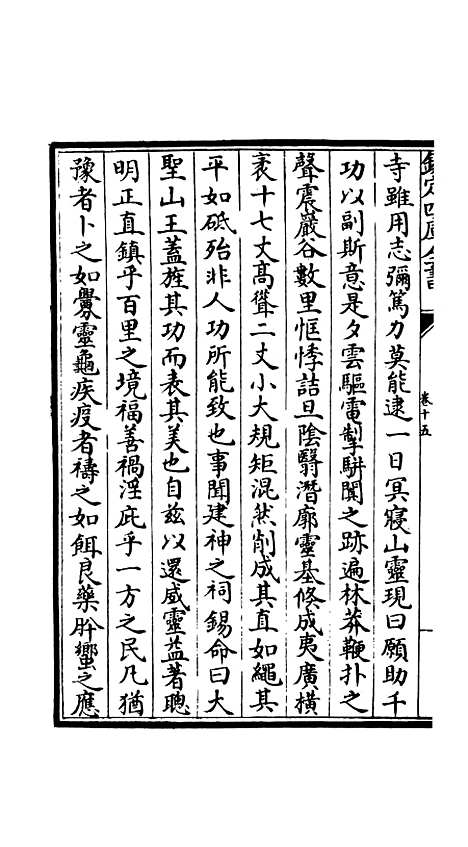 欽定四庫全書
卷十五
寺雖用志彌篤力莫能逮一日冥寢山靈現曰願助千
功以副斯意是夕雲驅電掣駢闐之跡遍林莽鞭扑之
聲震巖谷數里恇悸詰旦陰翳潛廓靈基倏成夷廣橫
袤十七丈高聳二丈小大規矩混然削成其直如繩其
平如砥殆非人功所能致也事聞建神之祠錫命曰大
聖山王蓋旌其功而表其美也自茲以還威靈益著聰
明正直鎮乎百里之境福善禍淫庇乎一方之民凡猶
豫者卜之如爂靈龜疾疫者禱之如餌良藥肸蠁之應